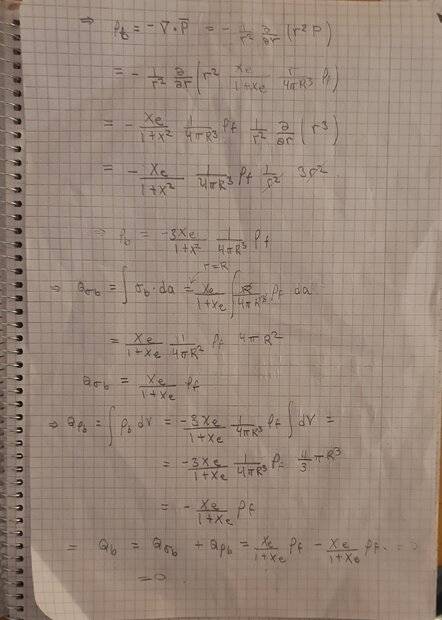 ⇒ ρ_b = -∇·P̄ = - 1/r² ∂/∂r (r² P)
= - 1/r² ∂/∂r (r² χe/(1+χe) r/(4πR³) ρf)
= - χe/(1+χ²) 1/(4πR³) ρf 1/r² ∂/∂r (r³)
= - χe/(1+χ²) 1/(4πR³) ρf 1/r² 3r²
⇒ ρ_b = -3χe/(1+χ²) 1/(4πR³) ρf
r=R
⇒ Q_σb = ∫ σ_b · da = χe/(1+χe) ∫ R/(4πR³) ρf da
= χe/(1+χe) 1/(4πR²) ρf 4πR²
Q_σb = χe/(1+χe) ρf
⇒ Q_ρb = ∫ ρ_b dV = -3χe/(1+χe) 1/(4πR³) ρf ∫ dV =
= -3χe/(1+χe) 1/(4πR³) ρf 4/3 πR³
= - χe/(1+χe) ρf
= Q_b = Q_σb + Q_ρb = χe/(1+χe) ρf - χe/(1+χe) ρf = 0
= 0